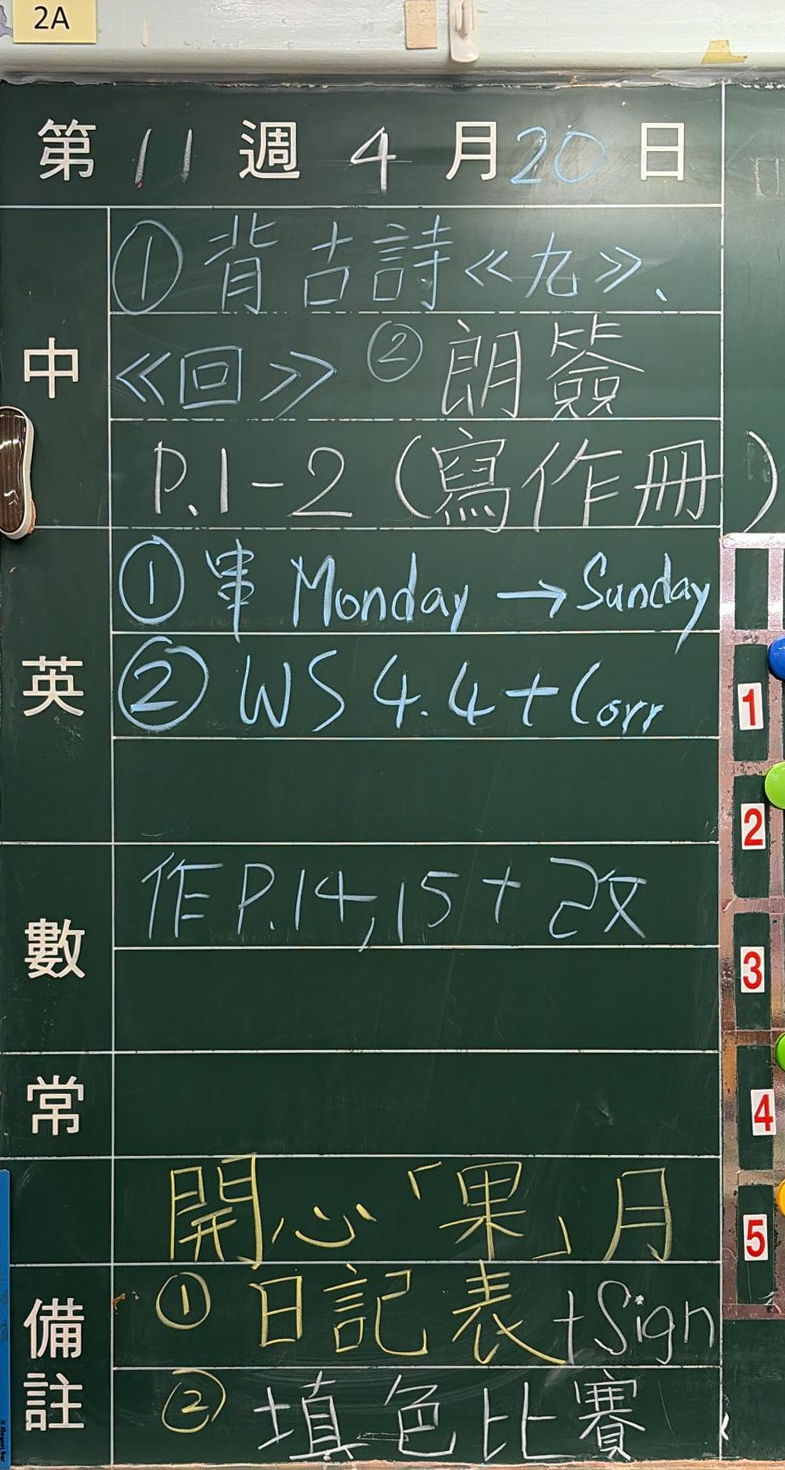 2A
第 11 週 4 月 20 日
中
①背古詩《九》、
《回》 ②朗簽
P.1-2 (寫作冊)
英
①串 Monday → Sunday
②WS 4.4 + Corr
數
作 P.14, 15 + 改
常
開心「果」月
備註
①日記表 + Sign
②填色比賽
1
2
3
4
5